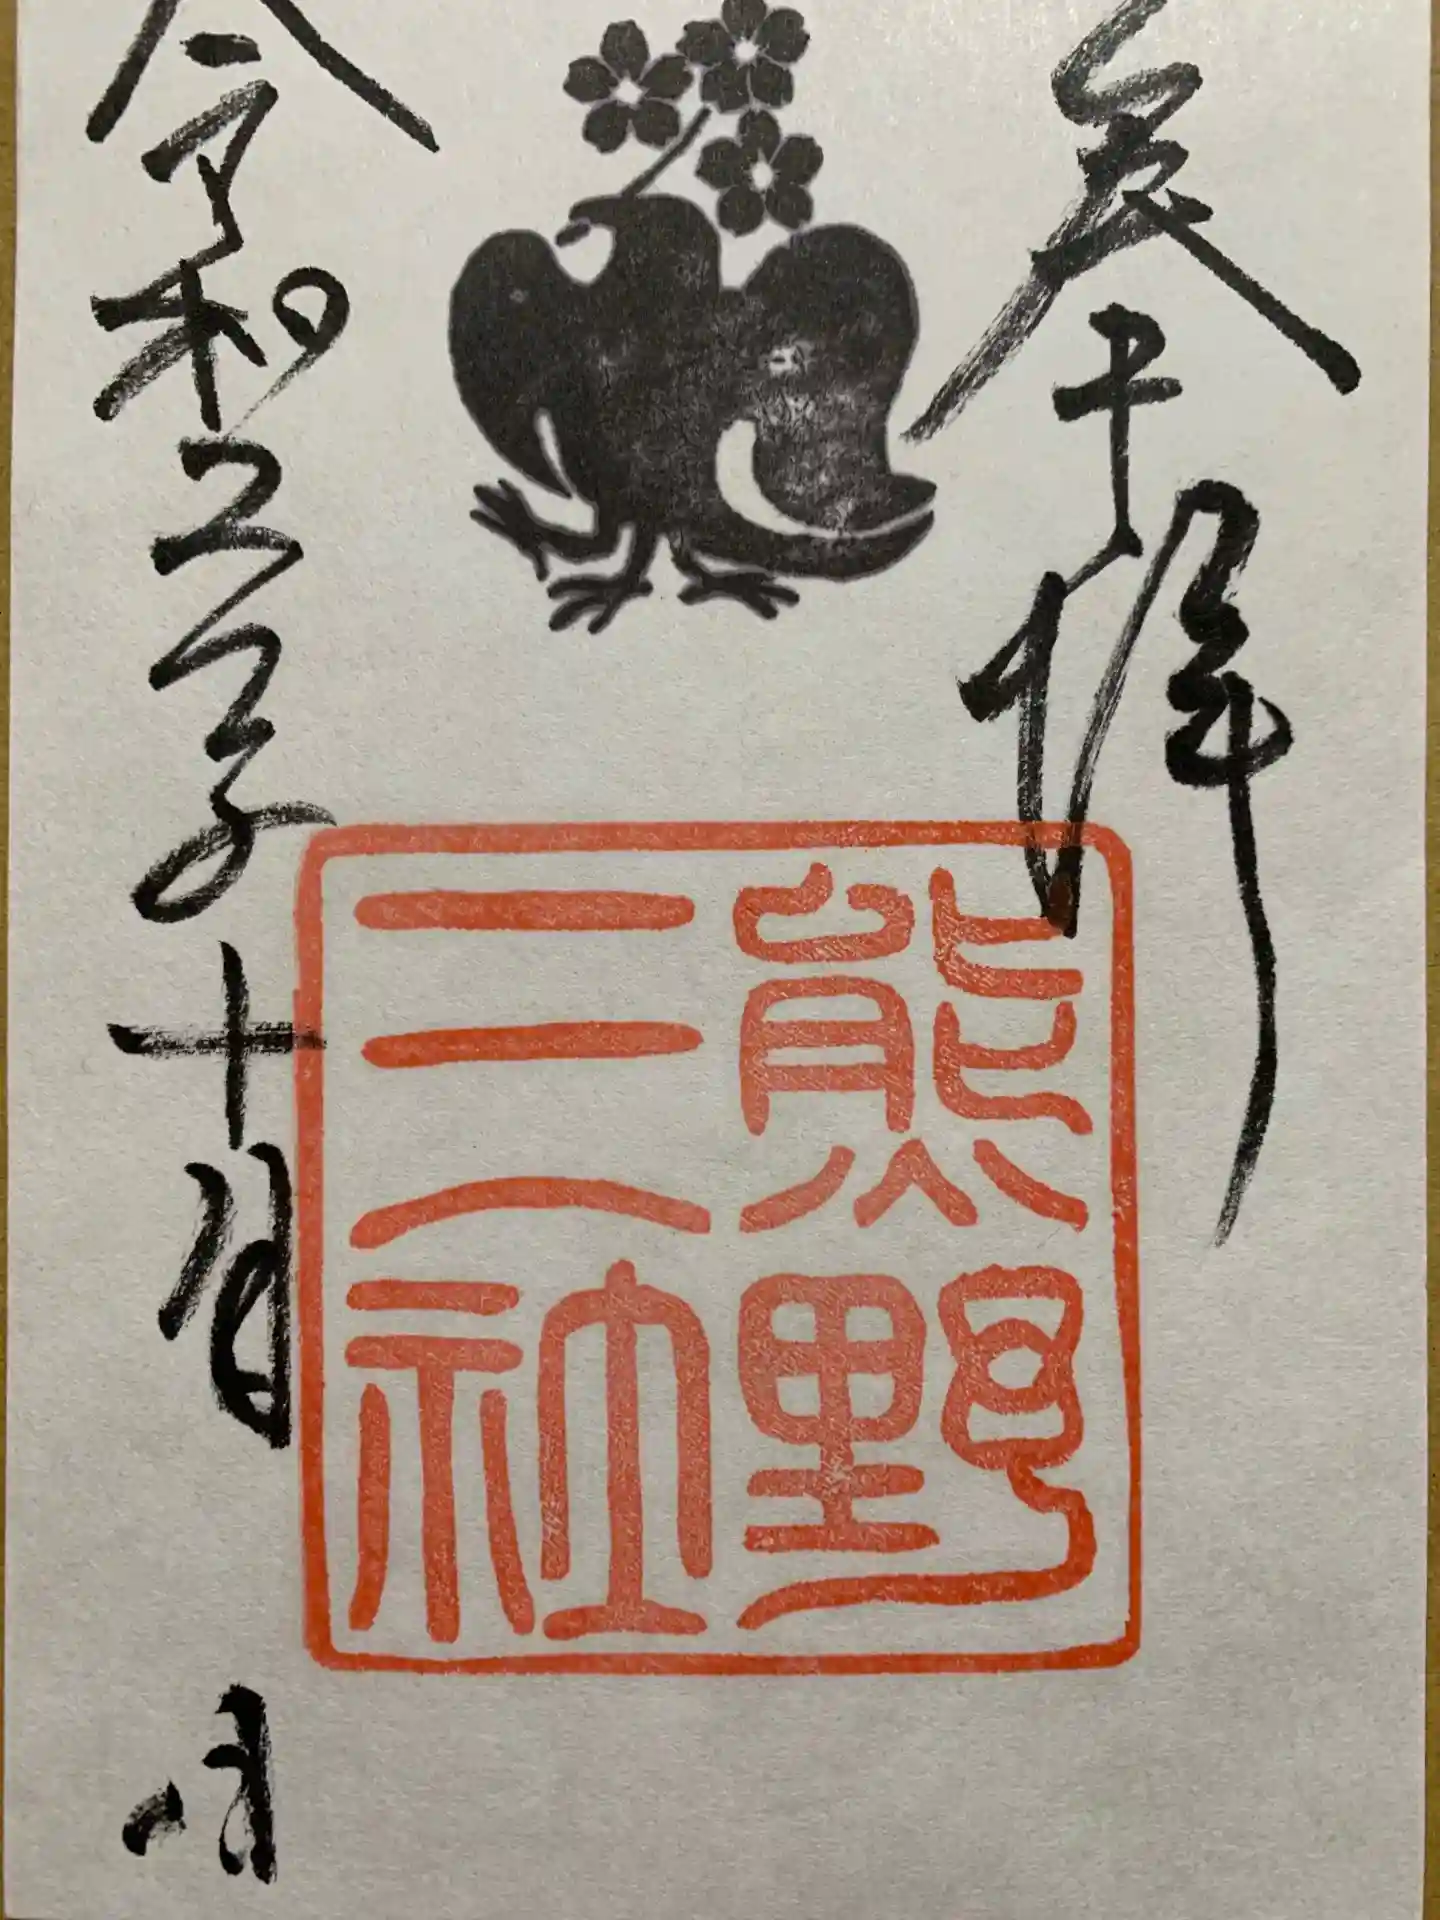 奉拝
熊野
三社
令和二年十月 日